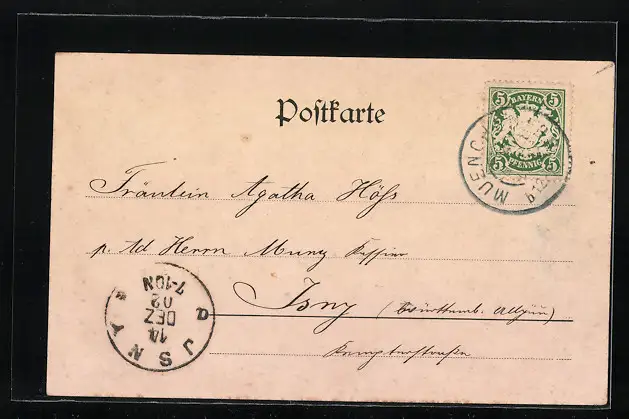 Postkarte
5 BAYERN 5
5 PFENNIG 5
MUENCH
Fräulein Agatha Höss
p. Ad Herrn Munz
Isny (Württemb. Allgäu)
Kempterstraße
JSNY
14
DEZ
02
7-10N